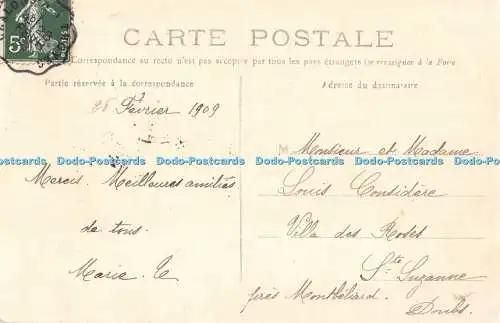 5c
CARTE POSTALE
La Correspondance au recto n'est pas acceptée par tous les pays étrangers (se renseigner à la Poste)
Partie réservée à la correspondance
Adresse du destinataire
26 Février 1909
Mercis. Meilleures amitiés
de tous.
Marie. E
M
Monsieur et Madame
Louis Considère
Villa des Roses
Ste Suzanne
près Montbéliard.
Doubs.
Dodo-Postcards Dodo-Postcards Dodo-Postcards Dodo-Postcards Dodo-Postcards